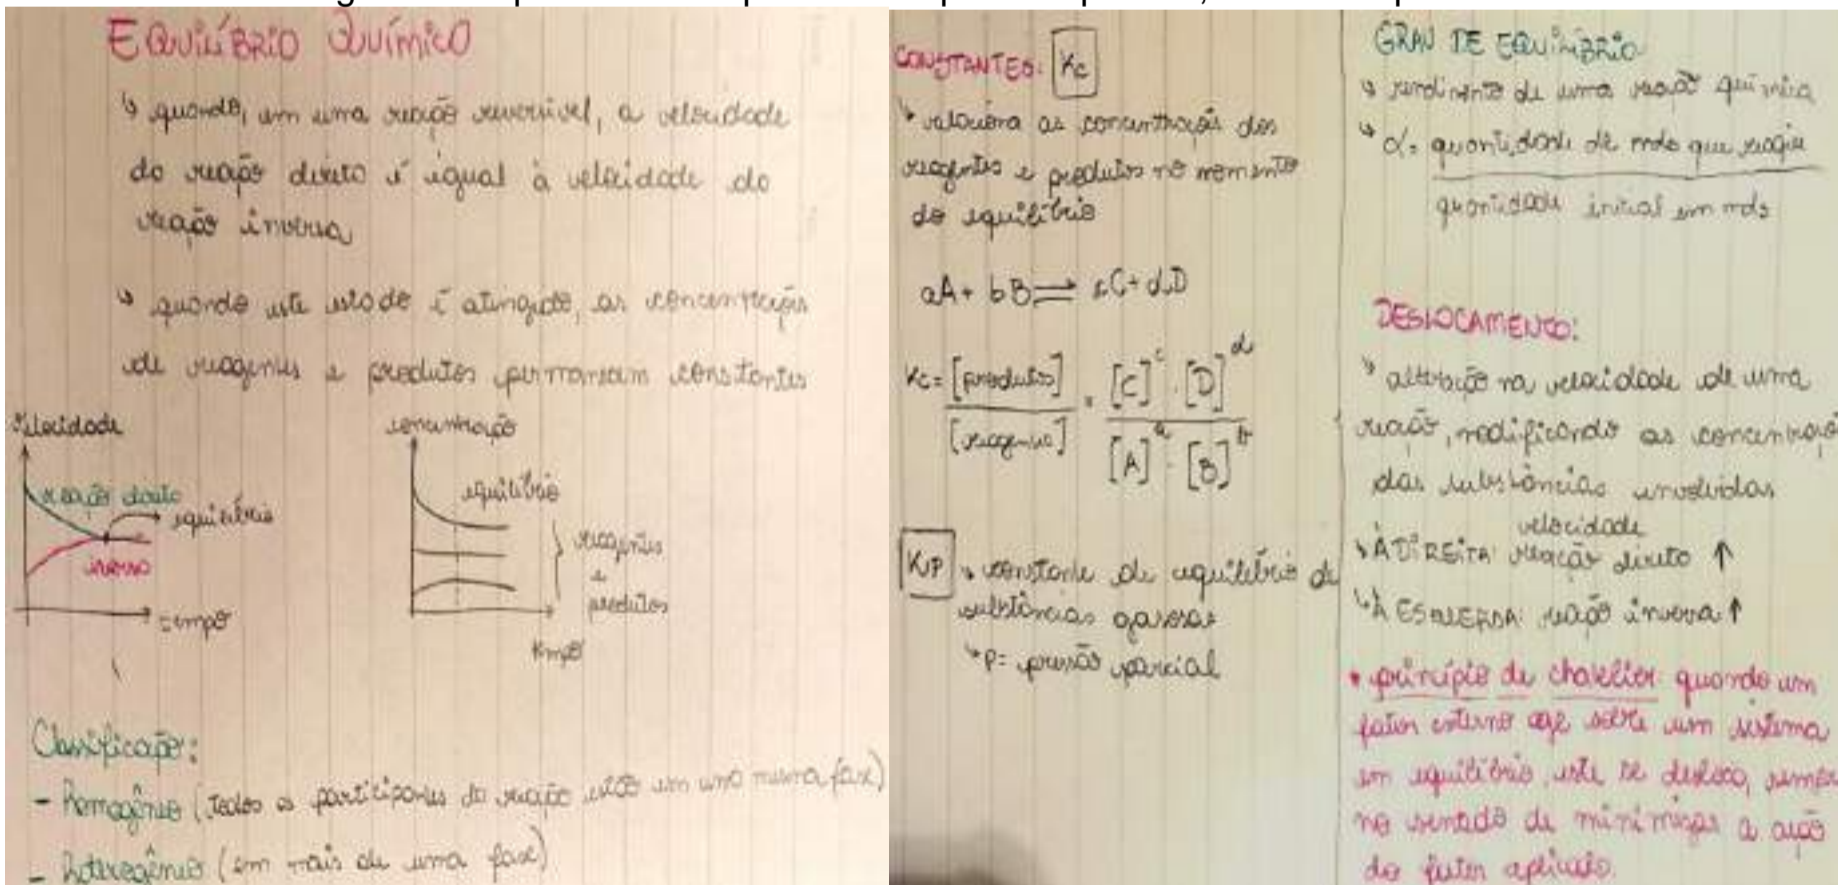 EQUILÍBRIO QUÍMICO
↳ quando, em uma reação reversível, a velocidade
da reação direta é igual à velocidade da
reação inversa
↳ quando este estado é atingido, as concentrações
de reagentes e produtos permanecem constantes
velocidade
reação direta
equilíbrio
inversa
tempo
concentração
equilíbrio
reagentes
e
produtos
tempo
Classificação:
- Homogêneo (todos os participantes da reação estão em uma mesma fase)
- Heterogêneo (em mais de uma fase)
CONSTANTES: Kc
↳ relaciona as concentrações dos
reagentes e produtos no momento
do equilíbrio
aA + bB ⇌ cC + dD
Kc = [produtos] / [reagentes] = [C]^c . [D]^d / [A]^a . [B]^b
KP ↳ constante de equilíbrio de
substâncias gasosas
↳ P = pressão parcial
GRAU DE EQUILÍBRIO
↳ rendimento de uma reação química
↳ α = quantidade de mols que reagiu
quantidade inicial em mols
DESLOCAMENTO:
↳ alteração na velocidade de uma
reação, modificando as
das substâncias envolvidas
velocidade
↳ À DIREITA: reação direta ↑
↳ À ESQUERDA: reação inversa ↑
• princípio de chatelier: quando um
fator externo age sobre um sistema
em equilíbrio, este se desloca,
no sentido de minimizar a ação
do fator aplicado.